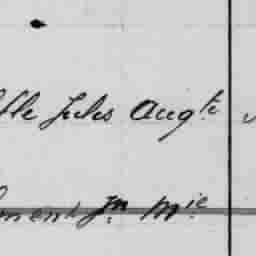 lle Jules Augte
ment Jn Mie